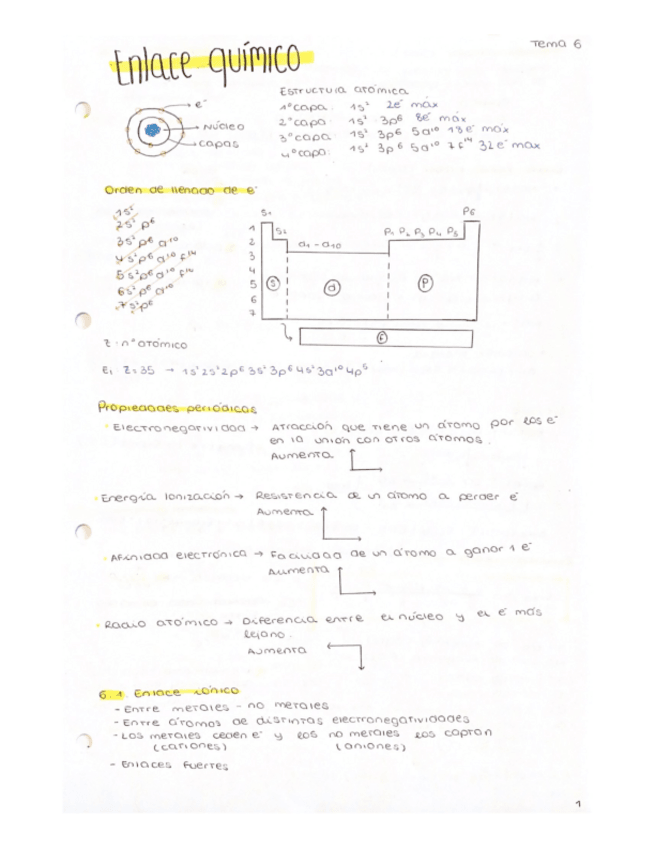 Tema 6
Enlace químico
Estructura atómica
e⁻
Núcleo
capas
1º capa: 1s² 2e⁻ máx
2º capa: 1s² 3p⁶ 8e⁻ máx
3º capa: 1s² 3p⁶ 5d¹⁰ 18e⁻ máx
4º capa: 1s² 3p⁶ 5d¹⁰ 7f¹⁴ 32e⁻ máx
Orden de llenado de e⁻
1s²
2s² p⁶
3s² p⁶ d¹⁰
4s² p⁶ d¹⁰ f¹⁴
5s² p⁶ d¹⁰ f¹⁴
6s² p⁶ d¹⁰
7s² p⁶
S₁ P6
1 S₂ P₁ P₂ P₃ P₄ P₅
2 d1 - d10
3
4
5 S d P
6
7
F
Z: nº atómico
Ej: Z=35 → 1s² 2s² 2p⁶ 3s² 3p⁶ 4s² 3d¹⁰ 4p⁵
Propiedades periódicas
Electronegatividad → Atracción que tiene un átomo por los e⁻
en la unión con otros átomos.
Aumenta
Energía Ionización → Resistencia de un átomo a perder e⁻
Aumenta
Afinidad electrónica → Facilidad de un átomo a ganar 1 e⁻
Aumenta
Radio atómico → Diferencia entre el núcleo y el e⁻ más
lejano.
Aumenta
6.1. Enlace iónico
- Entre metales - no metales
- Entre átomos de distintas electronegatividades
- Los metales ceden e⁻ y los no metales los captan
(cationes) (aniones)
- Enlaces fuertes
1